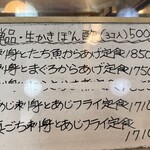 単品・生かきぽん酢(3コ入)500
刺身とたち魚からあげ定食 1850
刺身とまぐろからあげ定食 1750
あじ刺身とあじフライ定食 1710
真ごち刺身とあじフライ定食 1710